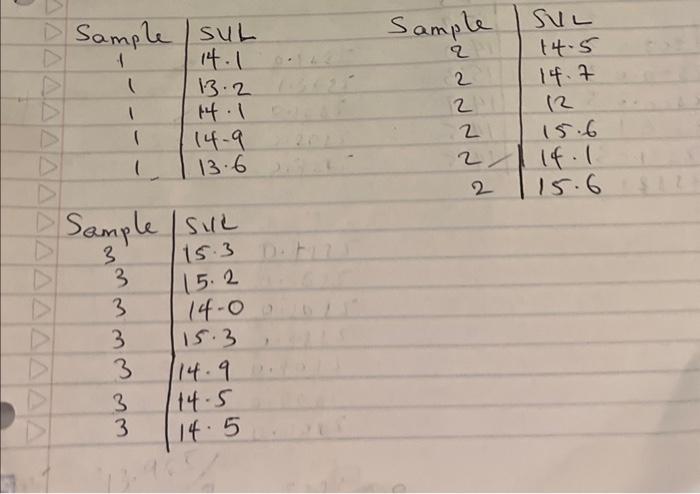 Sample SVL
1 14.1
1 13.2
1 14.1
1 14.9
1 13.6
Sample SVL
2 14.5
2 14.7
2 12
2 15.6
2 14.1
2 15.6
Sample SVL
3 15.3
3 15.2
3 14.0
3 15.3
3 14.9
3 14.5
3 14.5